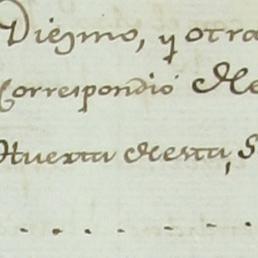 Diezmo, y otra
Correspondió de
Huerta desta, S
. . . . . . .